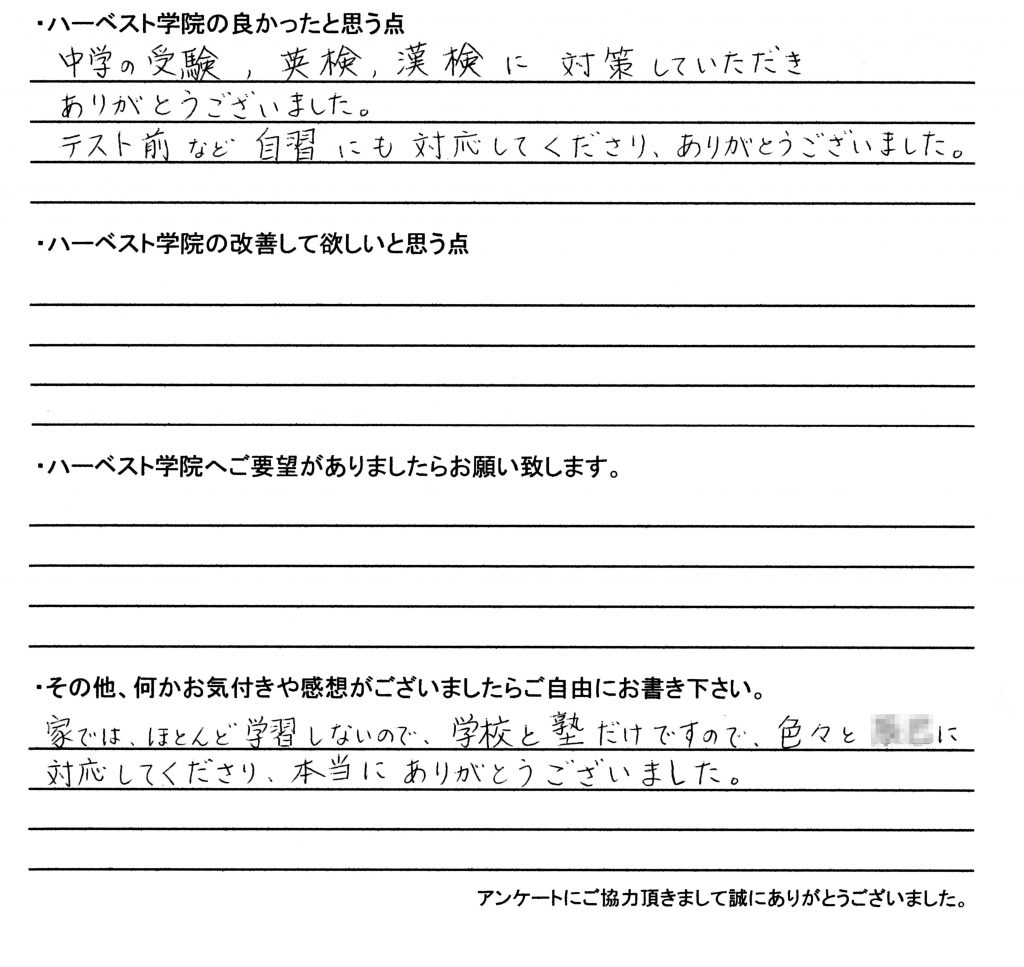 ・ハーベスト学院の良かったと思う点
中学の受験, 英検, 漢検に 対策していただき
ありがとうございました。
テスト前など自習にも対応してくださり、ありがとうございました。
・ハーベスト学院の改善して欲しいと思う点
・ハーベスト学院へご要望がありましたらお願い致します。
・その他、何かお気付きや感想がございましたらご自由にお書き下さい。
家では、ほとんど学習しないので、学校と塾だけですので、色々と に
対応してくださり、本当にありがとうございました。
アンケートにご協力頂きまして誠にありがとうございました。